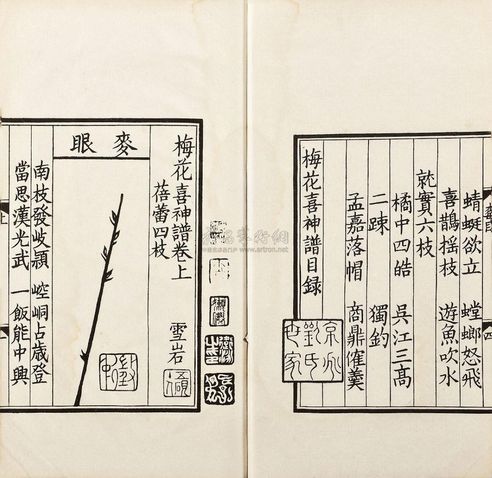 蜻蜓欲立 螳螂怒飛
喜鵲搖枝 遊魚吹水
就實六枝
橘中四皓 吳江三高
二疎 獨釣
孟嘉落帽 商鼎催羹
梅花喜神譜目録
京兆劉氏世家
梅花喜神譜卷上
蓓蕾四枝 雪岩
麥眼
南枝發岐穎 崆峒占歳登
當思漢光武 一飯能中興
上
四
www.artron.net